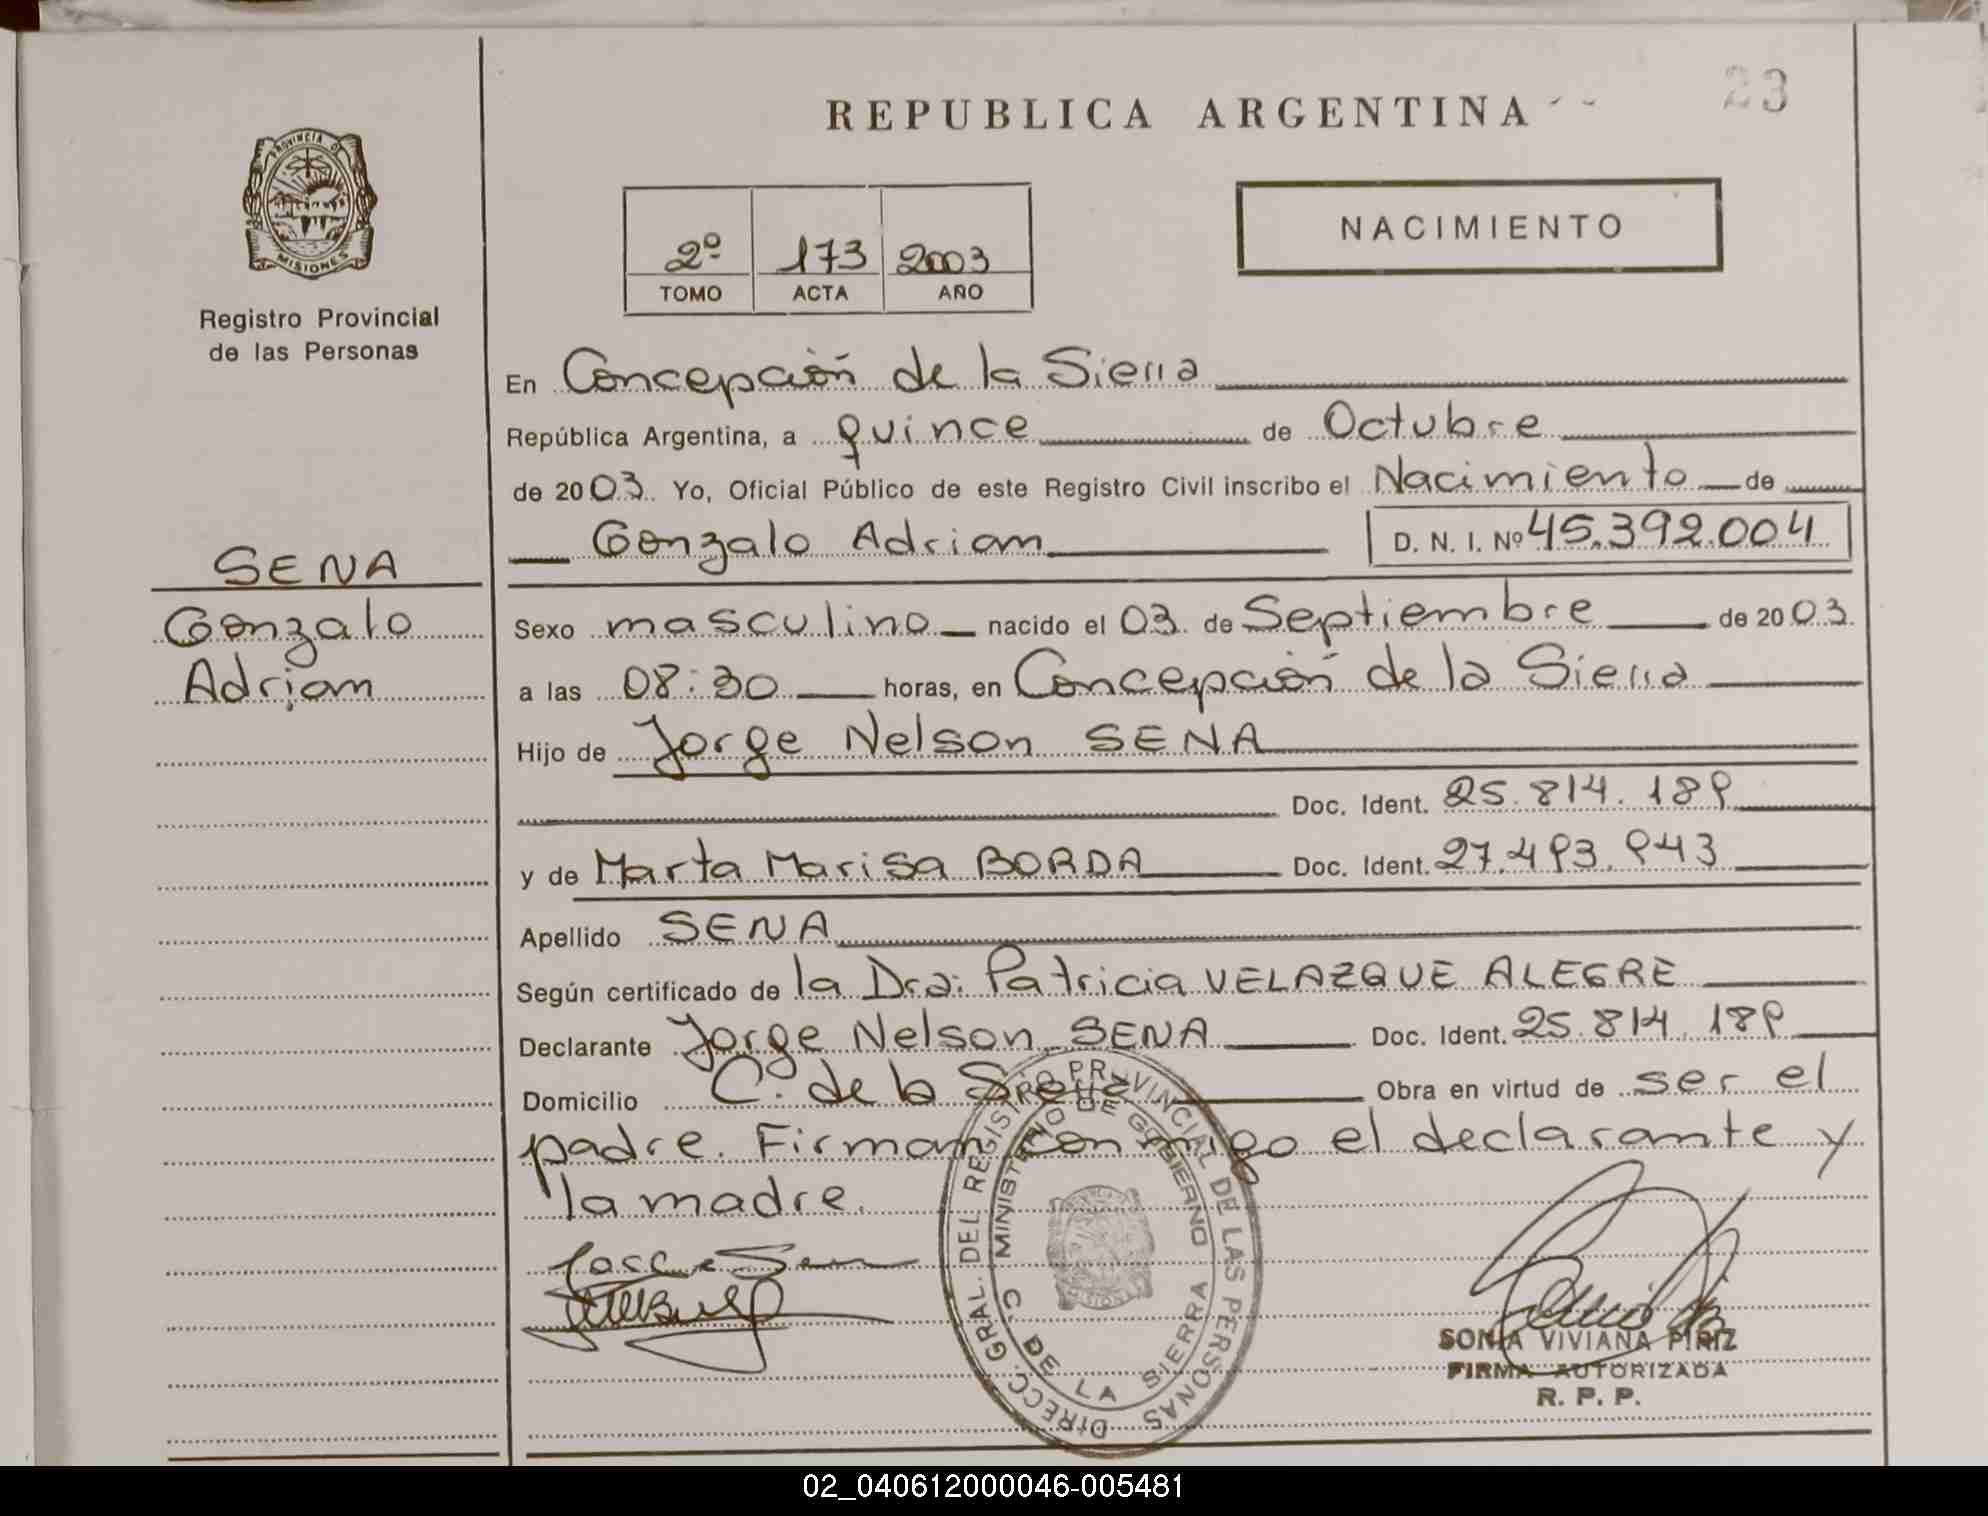 23
REPUBLICA ARGENTINA
PROVINCIA DE
MISIONES
Registro Provincial
de las Personas
2º 173 2003
TOMO ACTA AÑO
NACIMIENTO
En Concepción de la Sierra
República Argentina, a quince de Octubre
de 2003. Yo, Oficial Público de este Registro Civil inscribo el Nacimiento de
Gonzalo Adrian D. N. I. Nº 45.392.004
SENA
Gonzalo
Adrian
Sexo masculino nacido el 03 de Septiembre de 2003
a las 08:30 horas, en Concepción de la Sierra
Hijo de Jorge Nelson SENA
Doc. Ident. 25.814.189
y de Marta Marisa BORDA Doc. Ident. 27.493.943
Apellido SENA
Según certificado de la Dra: Patricia VELAZQUE ALEGRE
Declarante Jorge Nelson SENA Doc. Ident. 25.814.189
Domicilio C. de la Sierra Obra en virtud de ser el
padre. Firman conmigo el declarante y
la madre.
DIRECC. GRAL. DEL REGISTRO PROVINCIAL DE LAS PERSONAS
MINISTERIO DE GOBIERNO
C. DE LA SIERRA
MISIONES
SONIA VIVIANA PIRIZ
FIRMA AUTORIZADA
R. P. P.
02_040612000046-005481